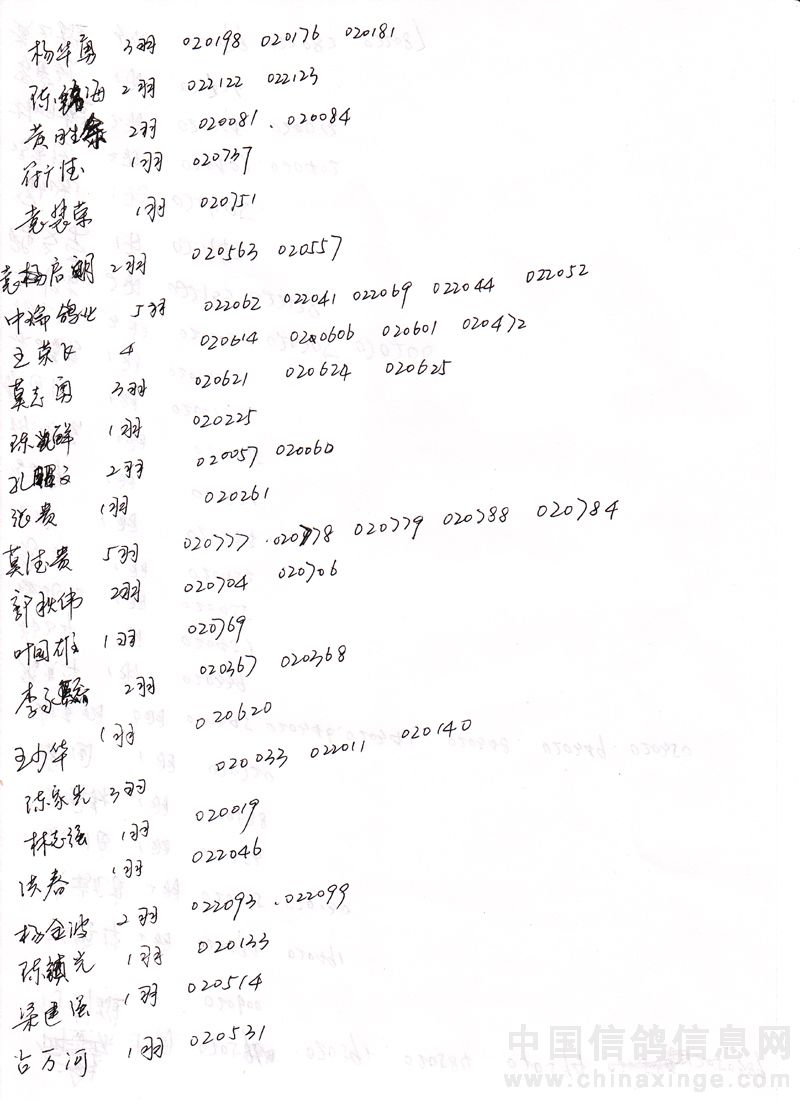 杨华勇 3羽 020198 020176 020181
陈铭海 2羽 022122 022123
黄胜余 2羽 020081 . 020084
符广佳 1羽 020737
袁裴荣 1羽 020751
杨启明 2羽 020563 020557
中瑞鸽业 5羽 022062 022041 022069 022044 022052
王荣飞 4 020614 020606 020601 020472
莫志勇 3羽 020621 020624 020625
陈鲜 1羽 020225
孔文 2羽 020057 020060
张贵 1羽 020261
莫佳贵 5羽 020777 . 020778 020779 020788 020784
郭秋伟 2羽 020704 020706
叶国雄 1羽 020769
李永 2羽 020367 020368
王少华 1羽 020620
陈家先 3羽 020033 022011 020140
林志强 1羽 020019
洪春 1羽 022046
杨金波 2羽 022093 . 022099
陈镇光 1羽 020133
梁建强 1羽 020514
古万河 1羽 020531
中国信鸽信息网
www.chinaxinge.com